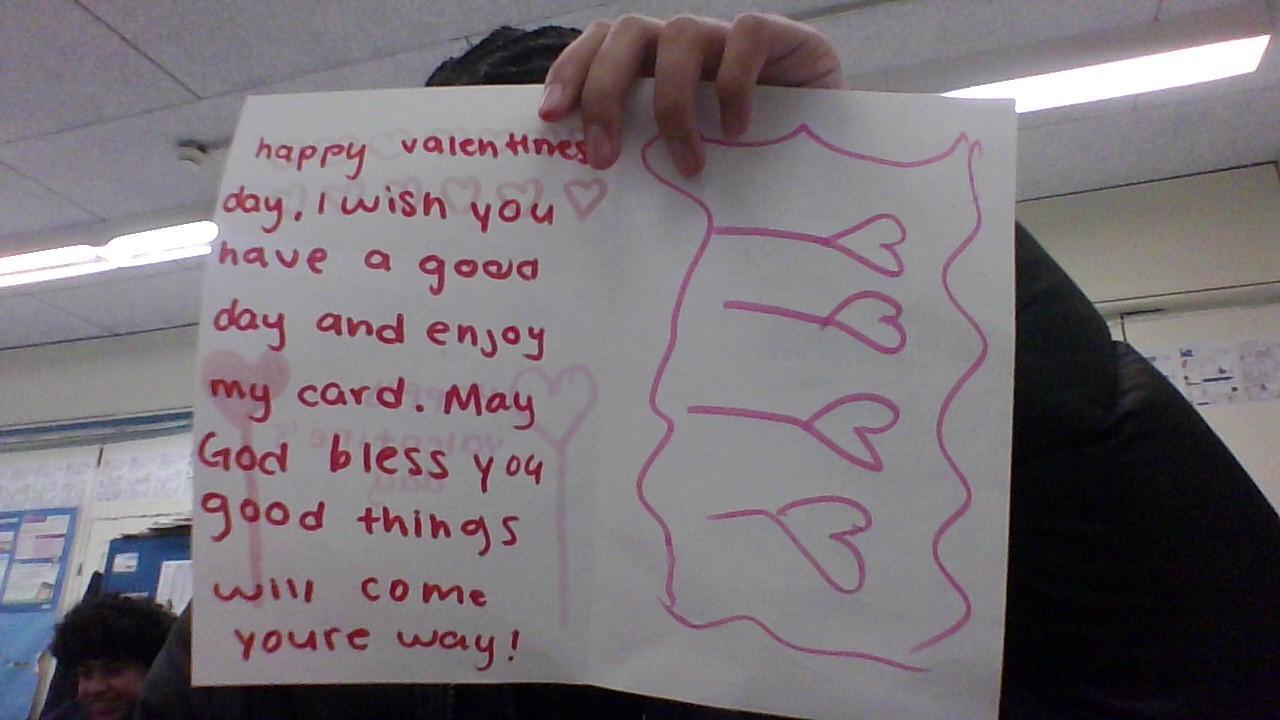 happy valentines
day, I wish you
have a good
day and enjoy
my card. May
God bless you
good things
will come
youre way!